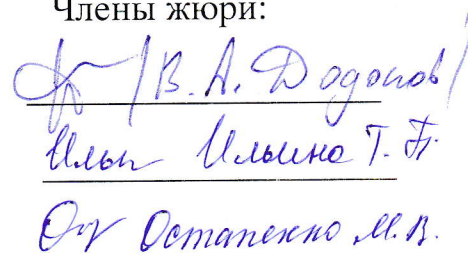 Члены жюри:
/ В. А. Додонов /
Ильина Т. П.
Остапенко М. В.